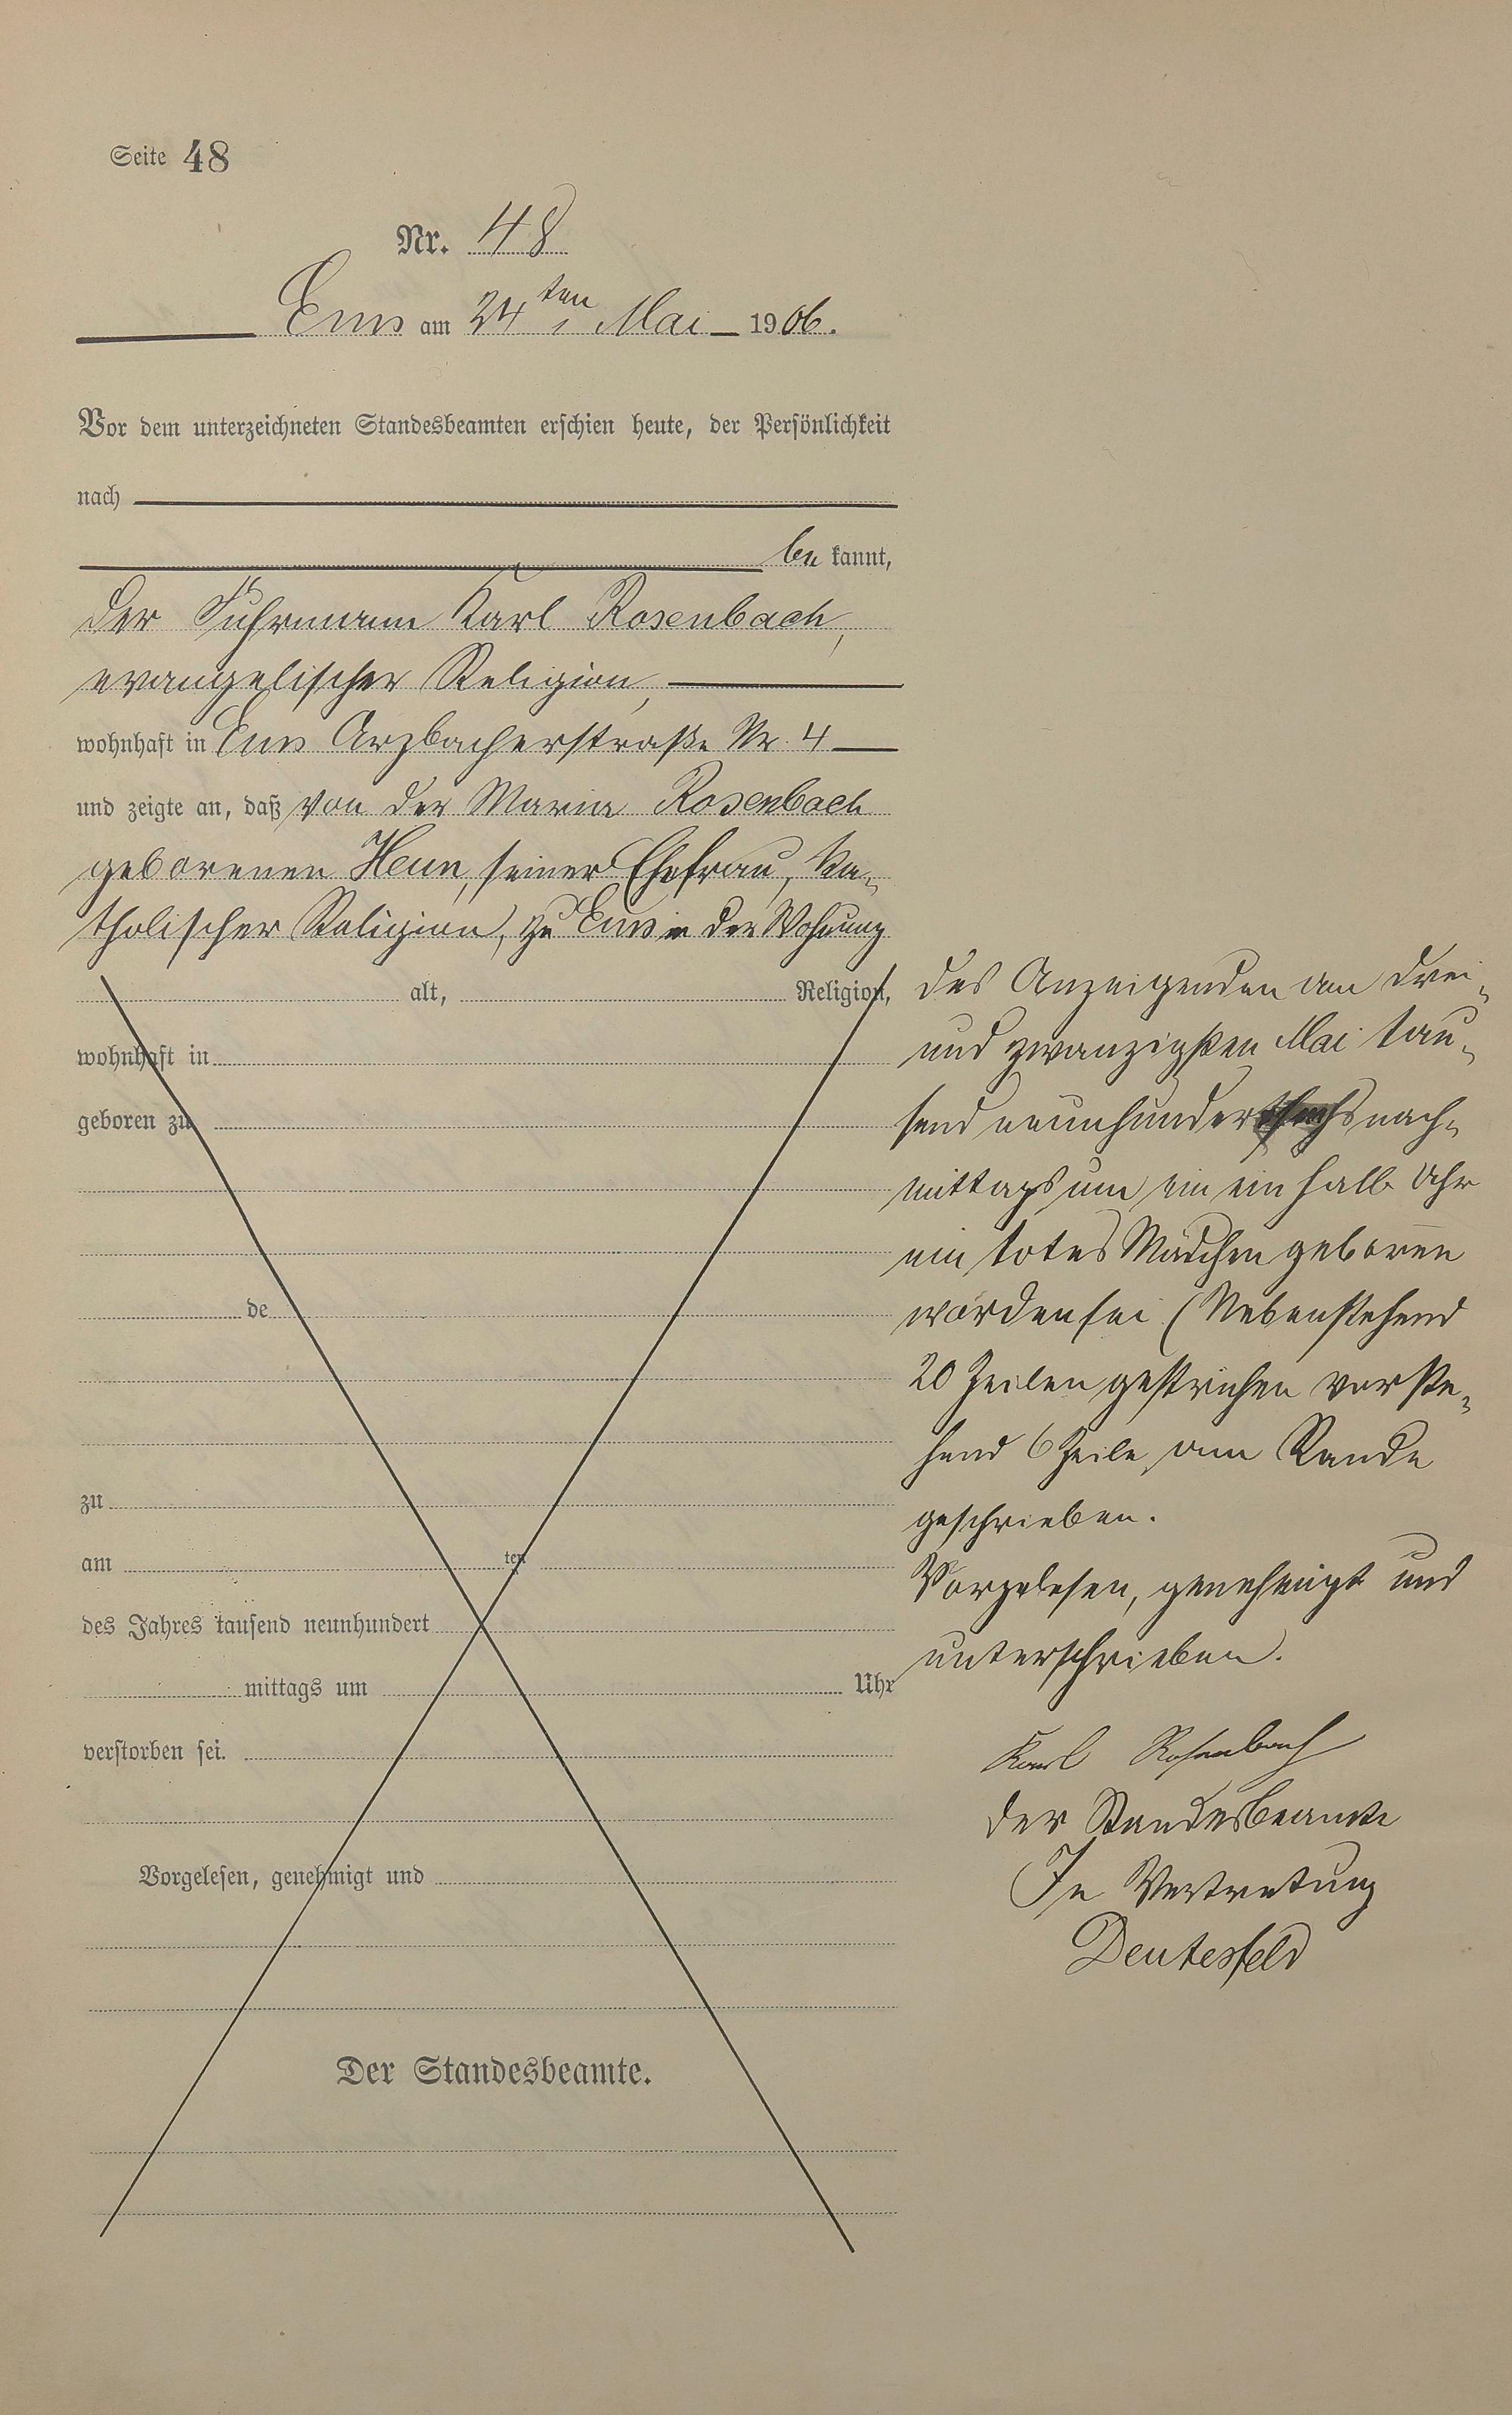 Seite 48
Nr. 48
Ems am 24ten Mai 1906.
Vor dem unterzeichneten Standesbeamten erschien heute, der Persönlichkeit
nach
be kannt,
der Fuhrmann Karl Rosenbach,
evangelischer Religion,
wohnhaft in Ems Arzbacherstraße Nr. 4
und zeigte an, daß von der Maria Rosenbach
geborenen Heun, seiner Ehefrau, ka-
tholischer Religion, zu Ems in der Wohnung
alt, Religion,
wohnhaft in
geboren zu
de
zu
am ten
des Jahres tausend neunhundert
mittags um Uhr
verstorben sei.
Vorgelesen, genehmigt und
Der Standesbeamte.
des Anzeigenden am drei-
und zwanzigsten Mai tau-
send neunhundertsechs nach-
mittags um ein ein halb Uhr
ein totes Mädchen geboren
worden sei (Nebenstehend
20 Zeilen gestrichen vorste-
hend 6 Zeile am Rande
geschrieben.
Vorgelesen, genehmigt und
unterschrieben.
Karl Rosenbach
Der Standesbeamte
In Vertretung
Deutesfeld